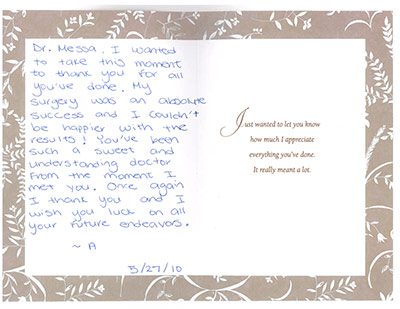 Dr. Messa, I wanted
to take this moment
to thank you for all
you've done. My
surgery was an absolute
success and I couldn't
be happier with the
results! You've been
such a sweet and
understanding doctor
from the moment I
met you. Once again
I thank you and I
wish you luck on all
your future endeavors.
~ A
3/27/10
Just wanted to let you know
how much I appreciate
everything you've done.
It really meant a lot.